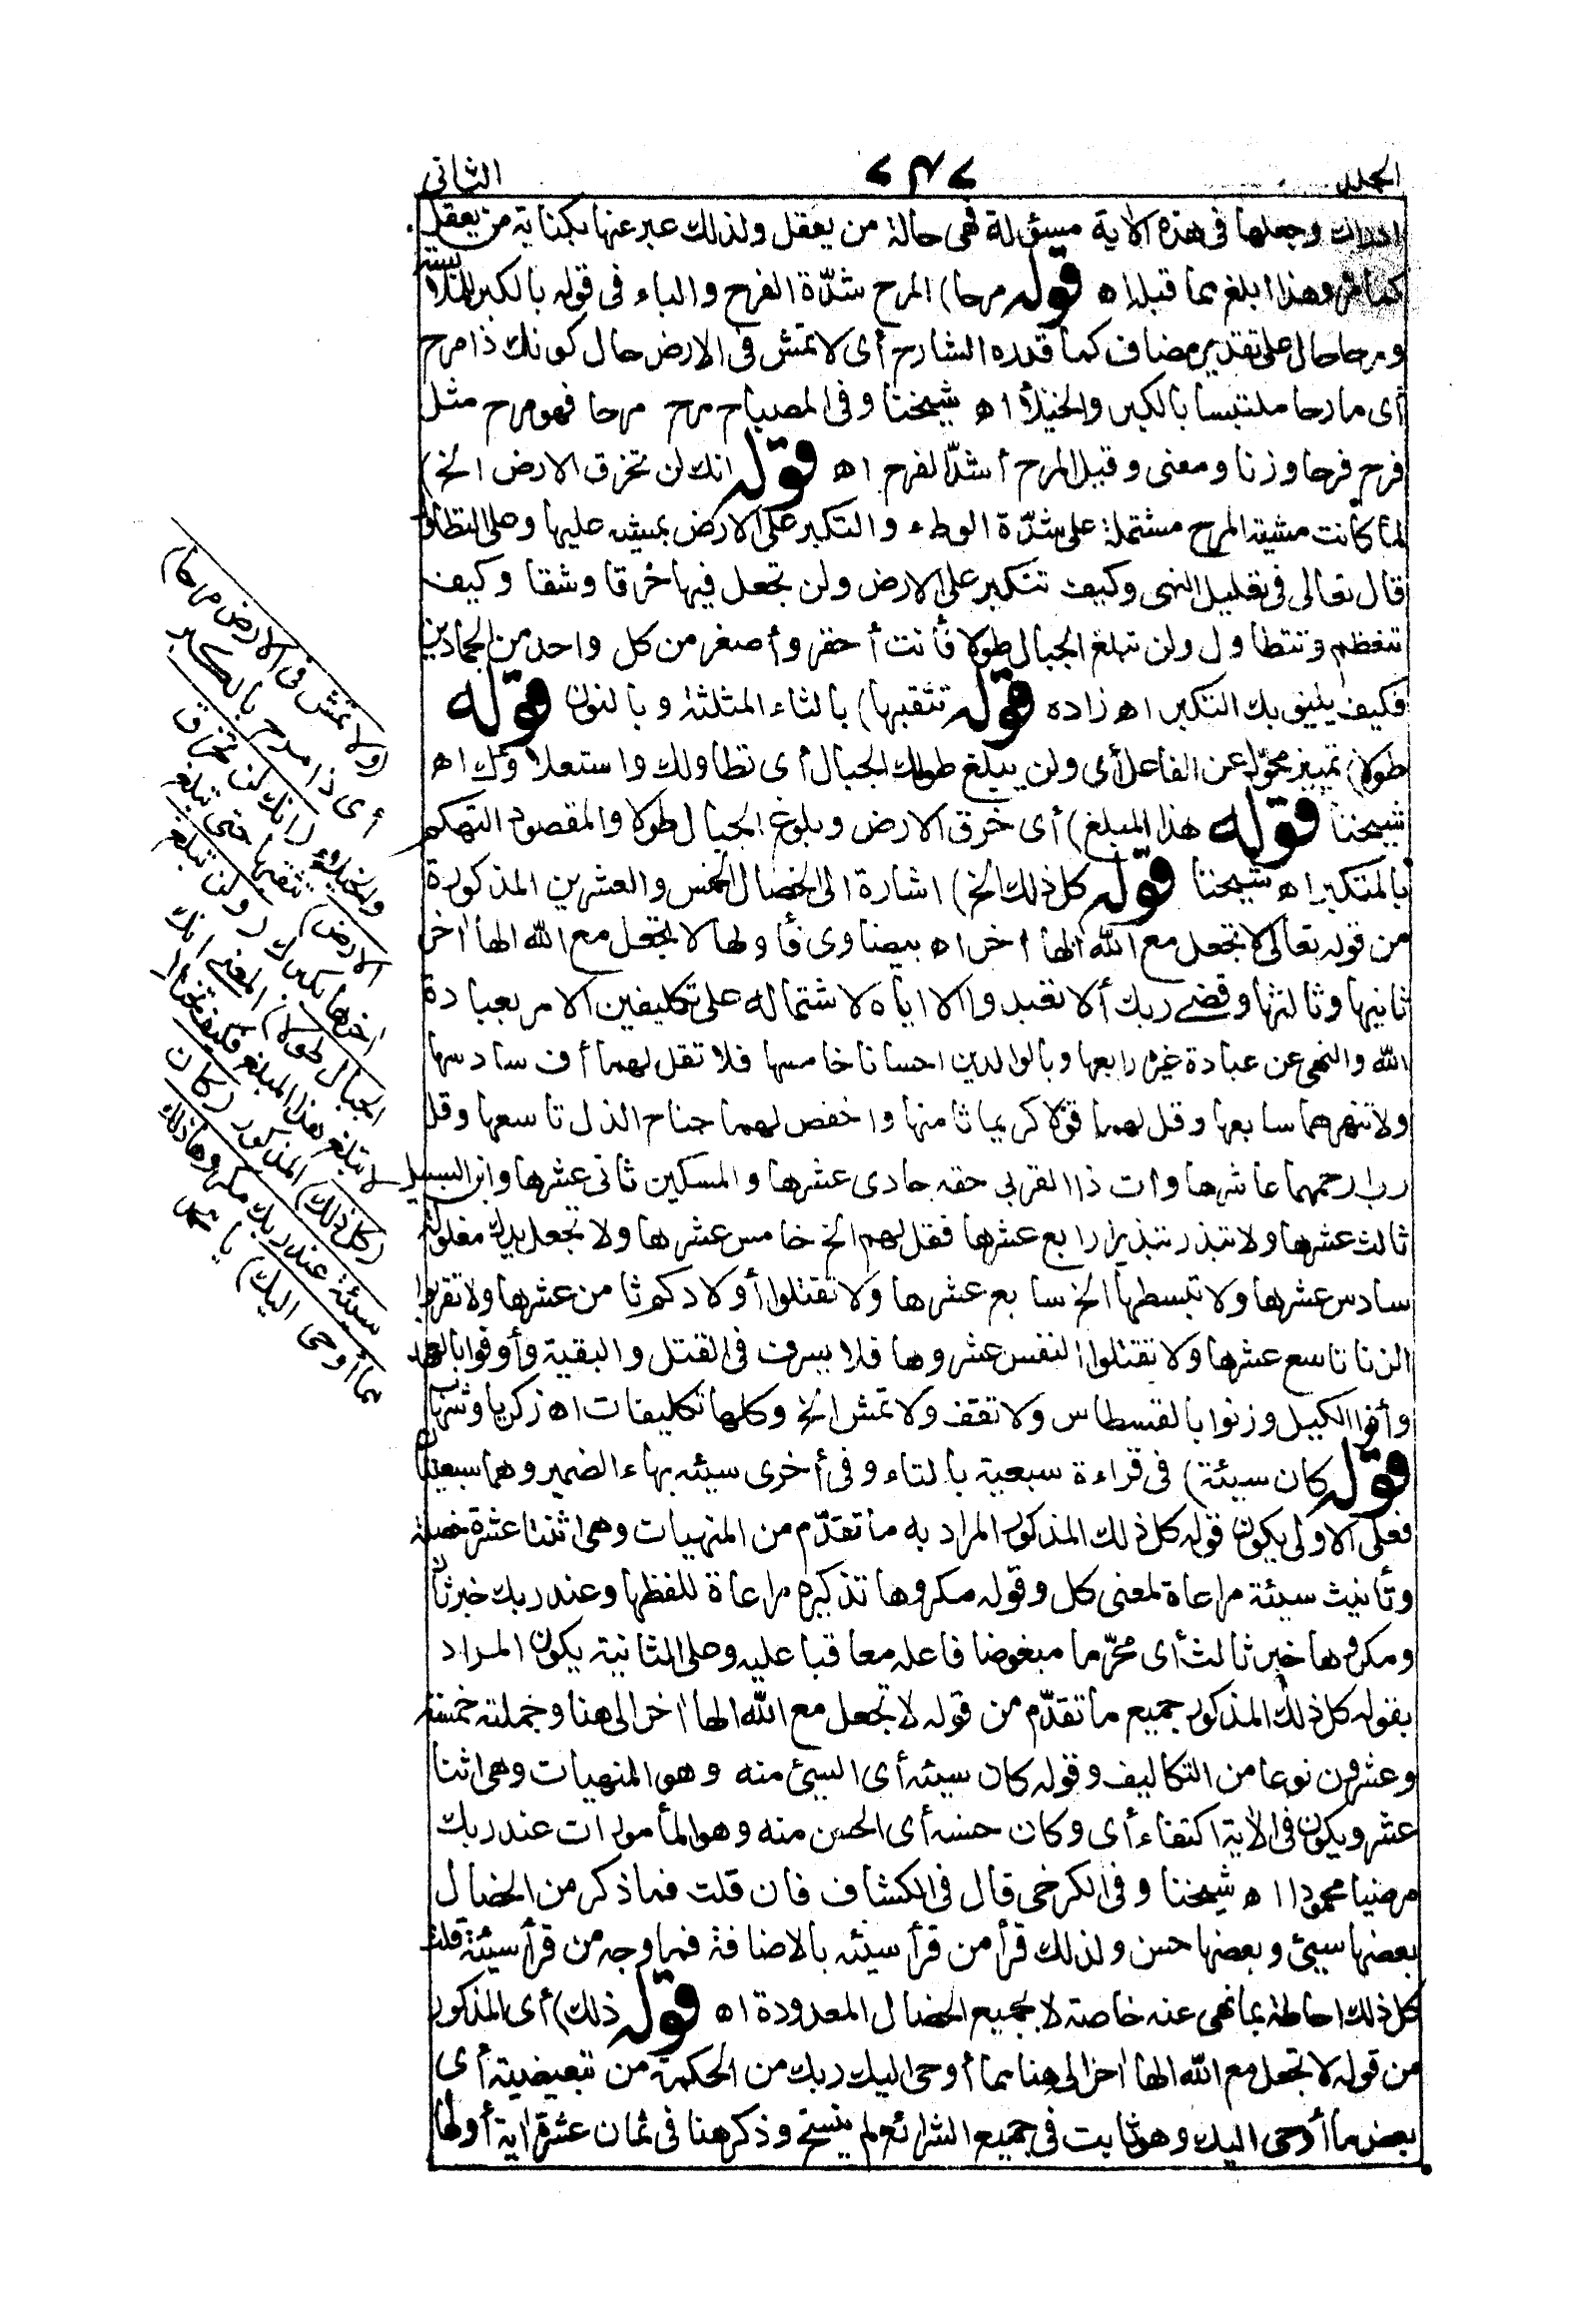 المجلد
٦٤٦
الثاني
ادراك وجعلها فى هذه الآية مسئولة فهى حالة من يعقل ولذلك عبر عنها بكناية من يعقل
كما مر وهذا ابلغ مما قبله اه قوله مرحا) المرح شدّة الفرح والباء فى قوله بالكبر للملابسة
ومرحا حال على تقدير مضاف كما قدره الشارح أى لا تمش فى الارض حال كونك ذا مرح
أى مارحا ملتبسا بالكبر والخيلاء اه شيخنا وفى المصباح مرح مرحا فهو مرح مثل
فرح فرحا وزنا ومعنى وقيل المرح أشدّ الفرح اه قوله انك لن تخرق الارض الخ)
لما كانت مشية المرح مشتملة على شدّة الوطء والتكبر على الارض بمشيه عليها وعلى التطاول
قال تعالى فى تعليل النهى وكيف تتكبر على الارض ولن تجعل فيها خرقا وشقا وكيف
تتعظم وتتطاول ولن تبلغ الجبال طولا فأنت أحقر وأصغر من كل واحد من الجمادين
فكيف يليق بك التكبر اه زاده قوله تثقبها) بالثاء المثلثة وبالنون قوله
طولا) تمييز محوّل عن الفاعل أى ولن يبلغ طولك الجبال أى تطاولك واستعلاؤك اه
شيخنا قوله هذا المبلغ) أى خرق الارض وبلوغ الجبال طولا والمقصود التهكم
بالمتكبر اه شيخنا قوله كل ذلك الخ) اشارة الى الخصال الخمس والعشرين المذكورة
من قوله تعالى لا تجعل مع الله الها اخر اه بيضاوى فأولها لا تجعل مع الله الها اخر
ثانيها وثالثها وقضى ربك ألا تعبدوا الا اياه لاشتماله على تكليفين الامر بعبادة
الله والنهى عن عبادة غيره رابعها وبالوالدين احسانا خامسها فلا تقل لهما أف سادسها
ولا تنهرهما سابعها وقل لهما قولا كريما ثامنها واخفض لهما جناح الذل تاسعها وقل
رب ارحمهما عاشرها وات ذا القربى حقه حادى عشرها والمسكين ثانى عشرها وابن السبيل
ثالث عشرها ولا تبذر تبذيرا رابع عشرها فقل لهم الخ خامس عشرها ولا تجعل يدك مغلولة
سادس عشرها ولا تبسطها الخ سابع عشرها ولا تقتلوا أولادكم ثامن عشرها ولا تقربوا
الزنا تاسع عشرها ولا تقتلوا النفس عشروها فلا يسرف فى القتل والبقية وأوفوا بالعهد
وأفوا الكيل وزنوا بالقسطاس ولا تقف ولا تمش الخ وكلها تكليفات اه زكريا وشهاب
قوله كان سيئة) فى قراءة سبعية بالتاء وفى أخرى سيئه بهاء الضمير وهما سبعيتان
فعلى الاولى يكون قوله كل ذلك المذكور المراد به ما تقدّم من المنهيات وهى اثنتا عشرة خصلة
وتأنيث سيئة مراعاة لمعنى كل وقوله مكروها تذكيره مراعاة للفظها وعند ربك خبر ثان
ومكروها خبر ثالث أى محرّما مبغوضا فاعله معاقبا عليه وعلى الثانية يكون المراد
بقوله كل ذلك المذكور جميع ما تقدّم من قوله لا تجعل مع الله الها اخر الى هنا وجملته خمسة
وعشرون نوعا من التكاليف وقوله كان سيئه أى السيئ منه وهو المنهيات وهى اثنا
عشر ويكون فى الآية اكتفاء أى وكان حسنه أى الحسن منه وهو المأمورات عند ربك
مرضيا محمودا اه شيخنا وفى الكرخى قال فى الكشاف فان قلت فما ذكر من الخصال
بعضها سيئ وبعضها حسن ولذلك قرأ من قرأ سيئه بالاضافة فما وجه من قرأ سيئة قلت
كل ذلك احاطة بما نهى عنه خاصة لا بجميع الخصال المعدودة اه قوله ذلك) أى المذكور
من قوله لا تجعل مع الله الها اخر الى هنا مما أوحى اليك ربك من الحكمة من تبعيضية أى
بعض ما أوحى اليك وهو ثابت فى جميع الشرائع لم ينسخ وذكر هنا فى ثمان عشرة اية أولها
(ولا تمش فى الارض مرحا)
أى ذا مرح بالكبر
والخيلاء (انك لن تخرق
الارض) تثقبها حتى تبلغ
اخرها بكبرك (ولن تبلغ
الجبال طولا) المعنى انك
لا تبلغ هذا المبلغ فكيف تختال
(كل ذلك) المذكور (كان
سيئة عند ربك مكروها ذلك
مما أوحى اليك) يا محمد